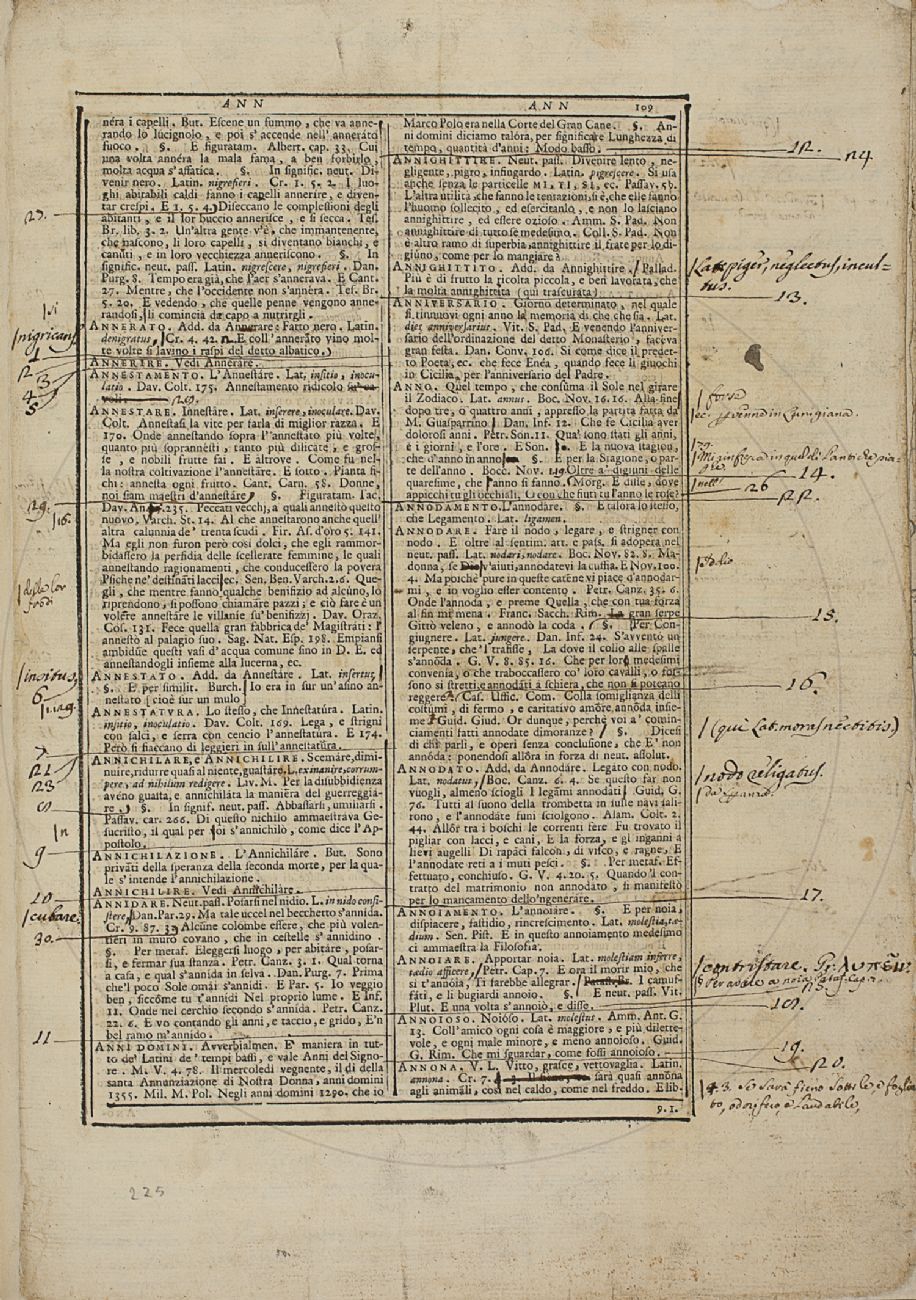 ANN
ANN 109
néra i capelli. But. Escene un fummo, che va anne-
rando lo lucignolo, e poi s'accende nell'annerato
fuoco. §. E figuratam. Albert. cap. 33. Cui
una volta annéra la mala fama, a ben forbirlo,
molta acqua s'affatica. §. In signific. neut. Di-
venir nero. Latin. nigrefieri. Cr. 1. 5. 2. I luo-
ghi abitabili caldi fanno i capelli annerire, e diven-
tar crespi. E 1. 5. 4. Diseccano le complessioni degli
abitanti, e il lor buccio annerisce, e si secca. Tes.
Br. lib. 3. 2. Un'altra gente v'è, che immantenente,
che nascono, li loro capelli, si diventano bianchi, e
canuti, e in loro vecchiezza anneriscono. §. In
signific. neut. pass. Latin. nigrescere, nigrefieri. Dan.
Purg. 8. Tempo era già, che l'aer s'annerava. E Cant.
27. Mentre, che l'occidente non s'annera. Tes. Br.
5. 20. E vedendo, che quelle penne vengono anne-
randosi, li comincia da capo a nutrirgli.
ANNERATO. Add. da Annerare: Fatto nero. Latin.
denigratus, Cr. 4. 42. E coll'annerato vino mol-
te volte si lavino i raspi del detto albatico.
ANNERIRE. Vedi Annerare.
ANNESTAMENTO. L'Annestáre. Lat. insitio, inocu-
latio. Dav. Colt. 175. Annestamento ridicolo
29.
ANNESTARE. Innestáre. Lat. inserere, inoculare. Dav.
Colt. Annestasi la vite per farla di miglior razza. E
170. Onde annestando sopra l'annestato più volte,
quanto più soprannesti, tanto più dilicate, e gros-
se, e nobili frutte fai. E altrove. Come fu nel-
la nostra coltivazione l'annestáre. E sotto. Pianta fi-
chi: annesta ogni frutto. Cant. Carn. 58. Donne,
noi siam maestri d'annestáre, §. Figuratam. Tac.
Dav. An. 235. Peccati vecchj, a quali annestò questo
nuovo. Varch. St. 14. Al che annestarono anche quell'
altra calunnia de' trenta scudi. Fir. As. d'oro 5. 141.
Ma egli non furon però così dolci, che egli rammor-
bidassero la perfidia delle scellerate femmine, le quali
annestando ragionamenti, che conducessero la povera
Psiche ne' destinati lacci ec. Sen. Ben. Varch. 2. 6. Que-
gli, che mentre fanno qualche benifizio ad alcúno, lo
riprendono, si possono chiamáre pazzi; e ciò fare è un
volére annestáre le villanie su' benifizzj. Dav. Oraz.
Cos. 131. Fece quella gran fabbrica de' Magistrati: l'
annestò al palagio suo. Sag. Nat. Esp. 198. Empiansi
ambidue questi vasi d'acqua comune sino in D. E. ed
annestandogli insieme alla lucerna, ec.
ANNESTATO. Add. da Annestáre. Lat. insertus,
§. E per similit. Burch. Io era in sur un'asino an-
nestato (cioè sur un mulo)
ANNESTATURA. Lo stesso, che Innestatúra. Latin.
insitio, inoculatio. Dav. Colt. 169. Lega, e strigni
con salci, e serra con cencio l'annestatura. E 174.
Però si fiaccano di leggieri in sull'annestatúra.
ANNICHILARE, e ANNICHILIRE. Scemáre, dimi-
nuire, ridurre quasi al niente, guastáre. L. exinanire, corrum-
pere, ad nihilum redigere. Liv. M. Per la disubbidienza
aveno guasta, e annichilata la maniéra del guerreggiá-
re. §. In signif. neut. pass. Abbassarsi, umiliarsi.
Passav. car. 266. Di questo nichilo ammaestrava Ge-
sucristo, il qual per noi s'annichilò, come dice l'Ap-
postolo.
ANNICHILAZIONE. L'Annichiláre. But. Sono
privàti della speranza della seconda morte, per la qua-
le s'intende l'annichilazione.
ANNICHILIRE. Vedi Annichiláre.
ANNIDARE. Neut. pass. Posarsi nel nidio. L. in nido consi-
stere, Dan. Par. 29. Ma tale uccel nel becchetto s'annida.
Cr. 9. 87. 3. Alcúne colombe essere, che più volen-
tieri in muro covano, che in cestelle s'annidino.
§. Per metaf. Eleggersi luogo, per abitáre, posar-
si, e fermar sua stanza. Petr. Canz. 3. 1. Qual torna
a casa, e qual s'annida in selva. Dan. Purg. 7. Prima
che'l poco Sole omai s'annidi. E Par. 5. Io veggio
ben, siccóme tu t'annidi Nel proprio lume. E Inf.
11. Onde nel cerchio secondo s'annida. Petr. Canz.
22. 6. E vo contando gli anni, e taccio, e grido, E'n
bel ramo m'annido.
ANNI DOMINI. Avverbialmen. E' maniera in tut-
to de' Latini de' tempi bassi, e vale Anni del Signo-
re. M. V. 4. 78. Il mercoledì vegnente, il dì della
santa Annunziazione di Nostra Donna, anni domini
1355. Mil. M. Pol. Negli anni domini 1290. che io
Marco Polo era nella Corte del Gran Cane. §. An-
ni domini diciamo talóra, per significáre Lunghezza di
tempo, quantità d'anni: Modo basso.
ANNIGHITTIRE. Neut. pass. Divenire lento, ne-
gligente, pigro, infingardo. Latin. pigrescere. Si usa
anche senza le particelle MI, TI, SI, ec. Passav. 56.
L'altra utilità, che fanno le tentazioni, si è, che elle fanno
l'huomo sollecito, ed esercitanlo, e non lo lasciano
annighittire, ed essere ozioso. Amm. S. Pad. Non
annighittire di tutto se medesimo. Coll. S. Pad. Non
è altro ramo di superbia annighittire il frate per lo di-
giúno, come per lo mangiáre?
ANNIGHITTITO. Add. da Annighittire. Pallad.
Più è di frutto la ricolta piccola, e ben lavorata, che
la molta annighittita (qui trascurata)
ANNIVERSARIO. Giorno determinato, nel quale
si rinnuovi ogni anno la memoria di che che sia. Lat.
dies anniversarius. Vit. S. Pad. E venendo l'anniver-
sario dell'ordinazione del detto Monasterio, faceva
gran festa. Dan. Conv. 106. Si come dice il predet-
to Poeta, ec. che fece Enea, quando fece li giuochi
in Cicilia, per l'anniversario del Padre.
ANNO. Quel tempo, che consúma il Sole nel girare
il Zodiaco. Lat. annus. Boc. Nov. 16. 16. Alla fine
dopo tre, o quattro anni, appresso la partita fatta da
M. Guasparrino. Dan. Inf. 12. Che fe Cicilia aver
dolorosi anni. Petr. Son. 11. Qua' sono stati gli anni,
e i giorni, e l'ore. E Son. 10. E la nuova stagion,
che d'anno in anno §. E per la Stagione, o par-
te dell'anno. Bocc. Nov. Oltre a' digiuni delle
quaresime, che l'anno si fanno. (Morg. E disse, dove
appicchi tu gli occhiali, O con che fiuti tu l'anno le rose?
ANNODAMENTO. L'annodare. §. E talora lo stesso,
che Legamento. Lat. ligamen.
ANNODARE. Fare il nodo, legare, e strigner con
nodo. E oltre al sentim. att. e pass. si adopera nel
neut. pass. Lat. nodari, nodare. Boc. Nov. 82. 8. Ma-
donna, se v'aiuti, annodatevi la cuffia. E Nov. 100.
4. Ma poichè pure in queste catene vi piace d'annodar-
mi, e io voglio esser contento. Petr. Canz. 35. 6.
Onde l'annoda, e preme Quella, che con tua forza
al fin mi mena. Franc. Sacch. Rim. La gran serpe
Gittò veleno, e annodò la coda. §. Per Con-
giugnere. Lat. jungere. Dan. Inf. 24. S'avventò un
serpente, che'l trafisse, La dove il collo alle spalle
s'annóda. G. V. 8. 85. 16. Che per loro medesimi
convenia, o che traboccassero co' loro cavalli, o fos-
sono si stretti, e annodáti a schiera, che non si poteano
reggere. Cas. Uffic. Com. Colla somiglianza delli
costumi, di fermo, e caritativo amóre, annóda insie-
me. Guid. Giud. Or dunque, perchè voi a' comin-
ciamenti fatti annodate dimoranze? §. Dicesi
di chi parli, e operi senza conclusióne, che E' non
annóda: ponendosi allóra in forza di neut. assolut.
ANNODATO. Add. da Annodáre. Legato con nodo.
Lat. nodatus, Boc. Canz. 6. 4. Se questo far non
vuogli, almeno sciogli I legámi annodáti. Guid. G.
76. Tutti al suono della trombetta in sulle navi sali-
rono, e l'annodáte funi sciolgono. Alam. Colt. 2.
44. Allór tra i boschi le correnti fere Fu trovato il
pigliar con lacci, e cani, E la forza, e gl'inganni a
lievi augelli Di rapáci falcon, di visco, e ragne, E
l'annodáte reti a i muti pesci. §. Per metaf. Ef-
fettuato, conchiuso. G. V. 4. 20. 5. Quando'l con-
tratto del matrimonio non annodáto, si manifestò
per lo mancamento dello'ngenerare.
ANNOIAMENTO. L'annoiáre. §. E per noia,
dispiacere, fastidio, rincrescimento. Lat. molestia, te-
dium. Sen. Pist. E in questo annoiamento medesimo
ci ammaestra la Filosofia.
ANNOIARE. Apportar noia. Lat. molestiam inferre,
tædio afficere, Petr. Cap. 7. E ora il morir mio, che
si t'annoia, Ti farebbe allegrar. I camuf-
fáti, e li bugiardi annoio. §. E neut. pass. Vit.
Plut. E una volta s'annoiò, e disse.
ANNOIOSO. Noióso. Lat. molestus. Amm. Ant. G.
13. Coll'amico ogni cosa è maggiore, e più dilette-
vole, e ogni male minore, e meno annoioso. Guid.
G. Rim. Che mi sguardar, come fossi annoioso.
ANNONA. V. L. Vitto, grasce, vettovaglia. Latin.
annona. Cr. 7. sarà quasi annona
agli animali, così nel caldo, come nel freddo. E lib.
9. 1.
23.
nigricans
1
2
3
4
5
29.
16.
insitus,
6
mag.
7
21
23
8
n
9
10
cubare.
30.
11
12.
24
Lat. piger, neglectus, incul-
tus.
13.
forse
14.
26
22.
15.
16.
(qui Lat. mora nectitis.)
nodo religatus.
17.
contristare. Gr. λυπεῖν
18.
19.
20.
4. 3. Se sarà fieno sottile, e foglia-
to, odorifero, e laudabile,
225